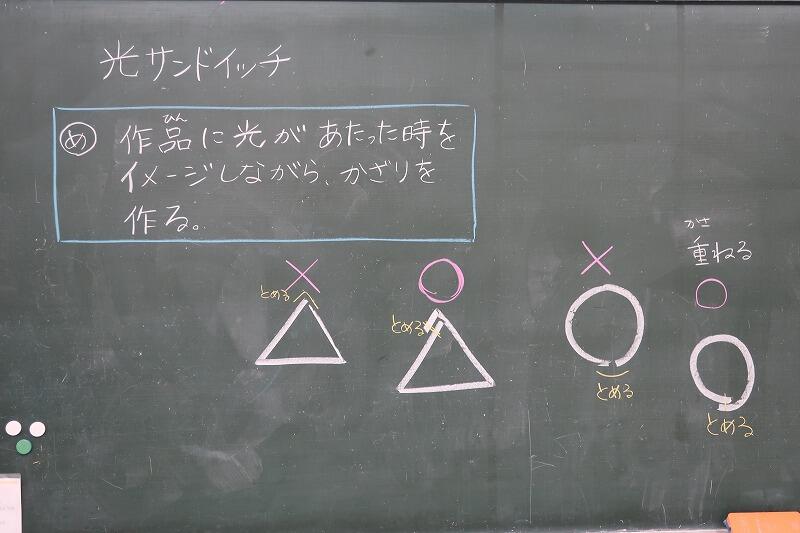 光サンドイッチ
め 作品に光があたった時を
ひん
イメージしながら、かざりを
作る。
かさ
重ねる
とめる
とめる
とめる
とめる